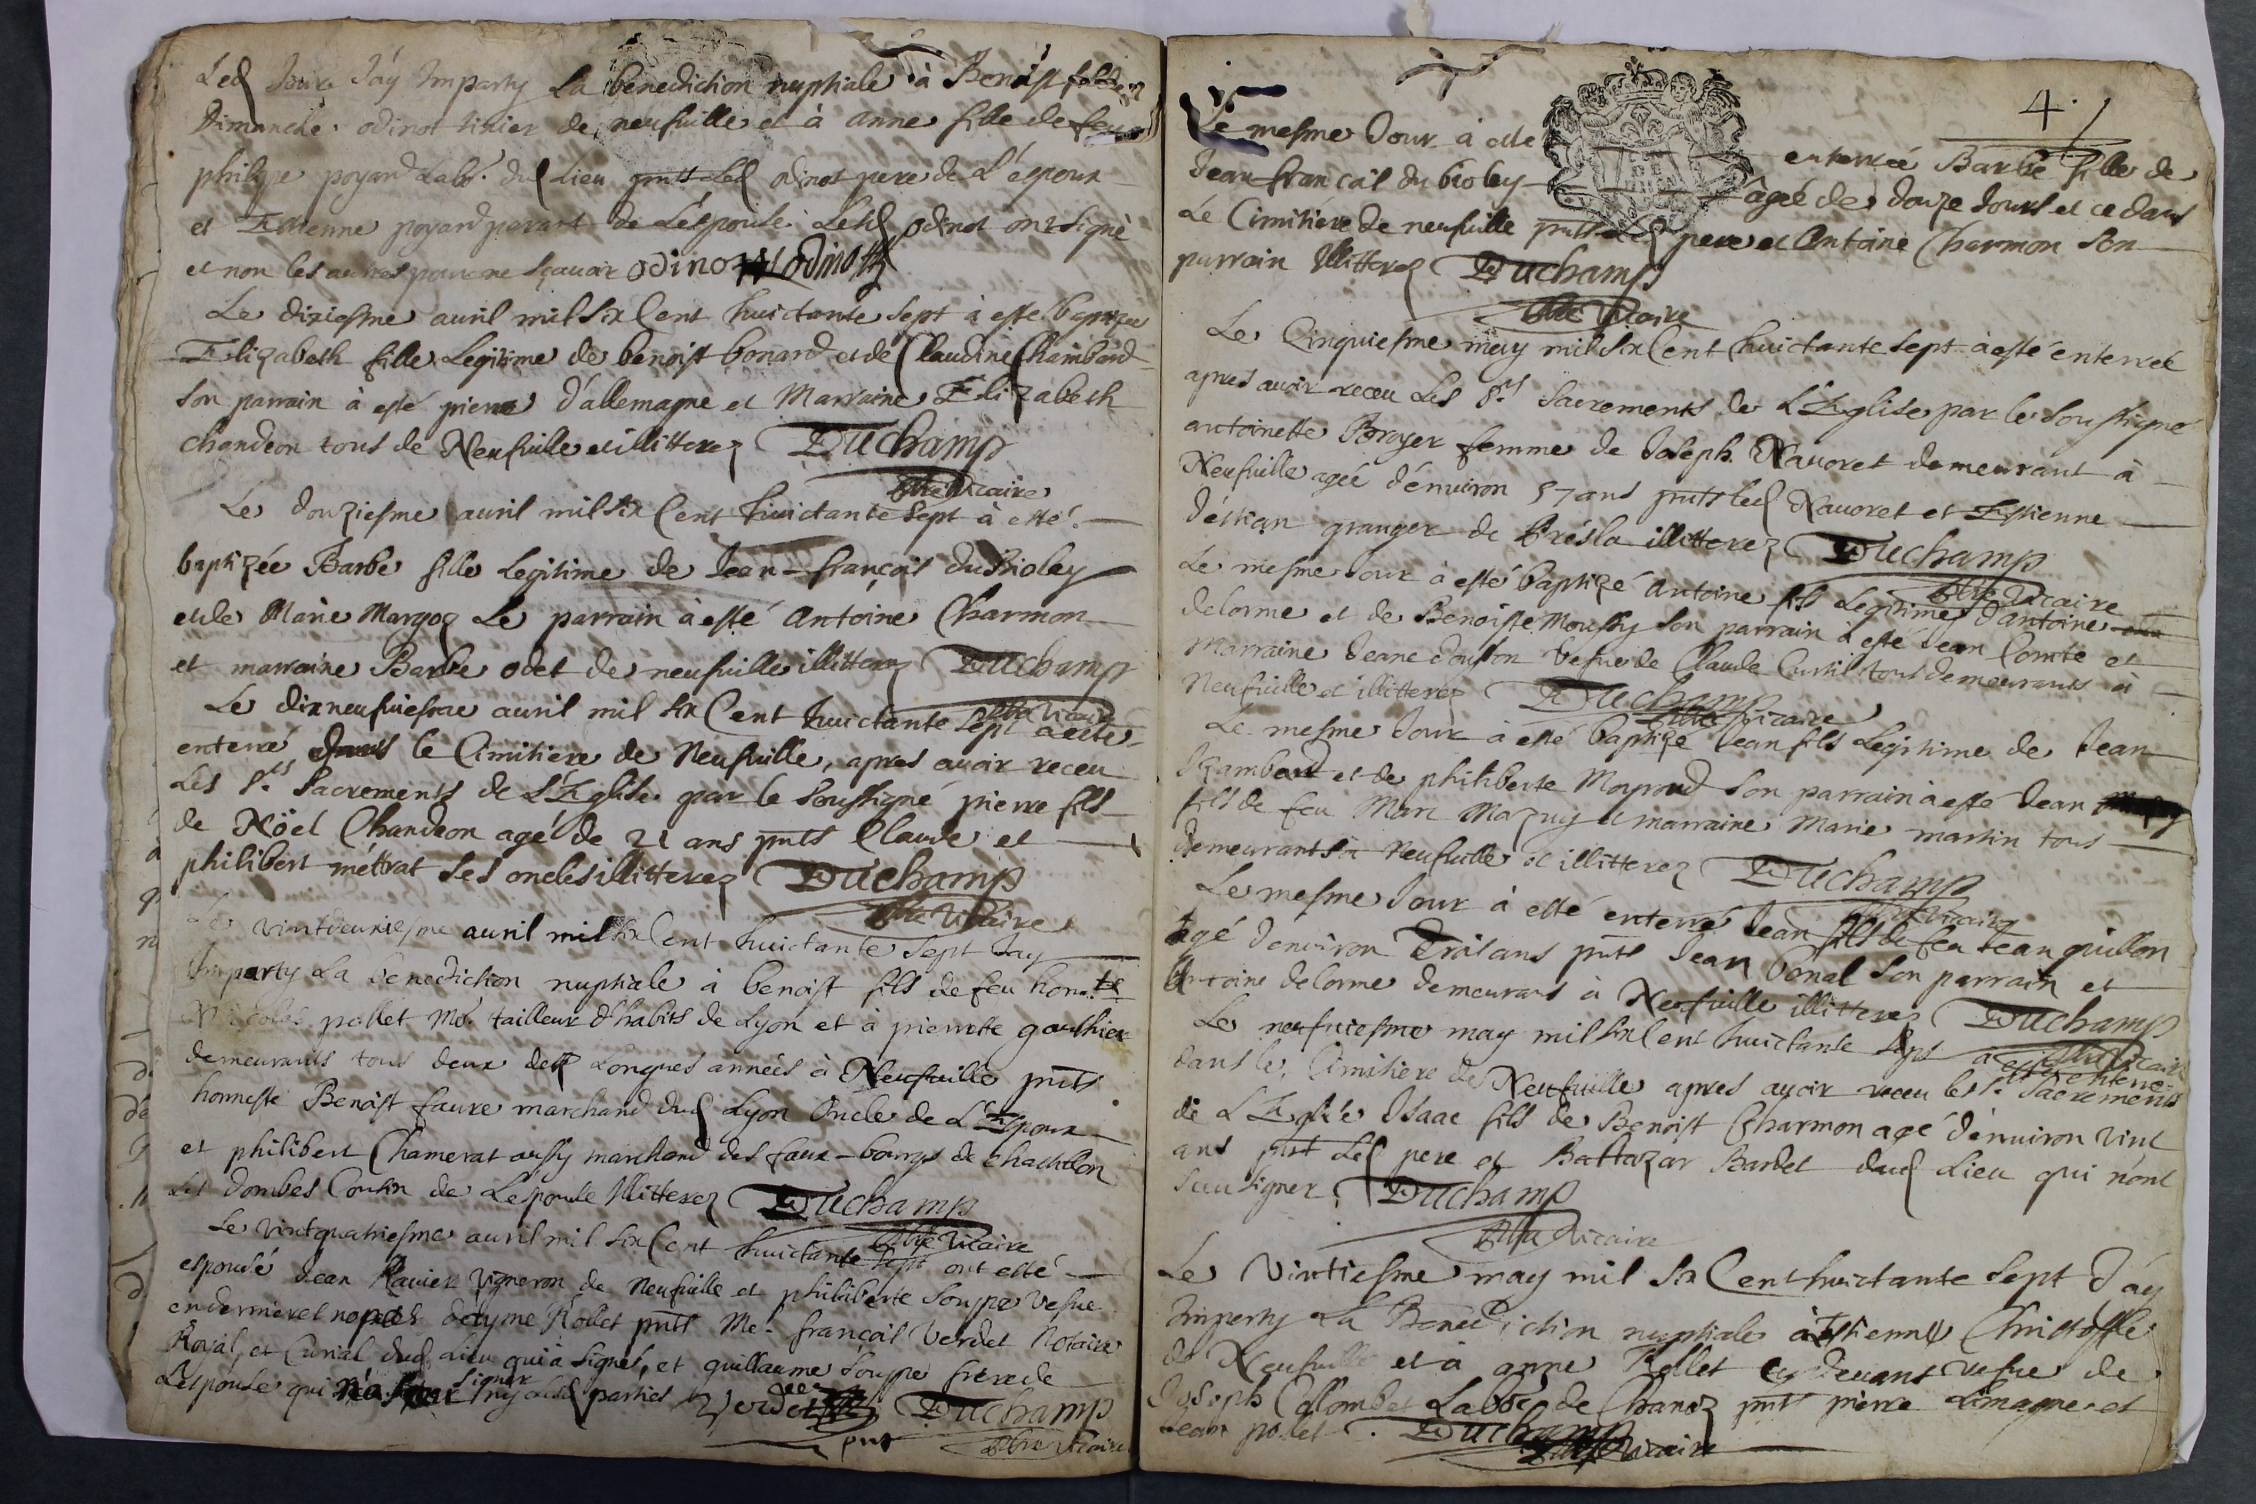 Led Jour J'ay Imparty La benediction nuptiale à Benoist fils de
Dimanche odinot tixier de neufuille et à anne fille de feu
philippe poyard Labo.r dud Lieu pnts Led odinot pere de L'époux
et Estienne poyard parant de L'épouse. Lesd odinot ont signé
et non les autres pour ne sçauoir odinot odinot
Le dixiesme auril mil six Cent huictante sept à esté baptizée
Elizabeth fille Legitime de benoist bonard et de Claudine Chambard
son parrain à esté pierre d'allemagne et Marraine Elizabeth
chandeon tous de Neufuille et illitterez Duchamp
pbre vicaire
Le douziesme auril mil six Cent huictante sept à esté
baptizée Barbe fille Legitime de Jean-françois du Bioley
et de Marie Margoz Le parrain à esté Antoine Charmon
et marraine Barbe odet de neufuille illitterez Duchamp
pbre vicaire
Le dixneufuiesme auril mil six Cent huictante sept à esté
enterré dans le Cimitiere de Neufuille, apres auoir receu
Les S.ts Sacrements de L'Eglise par le soussigné pierre fils
de Nöel Chandeon agé de 21 ans pnts Claude et
philibert méttrat ses oncles illitterez Duchamp
pbre vicaire
Le vintdeuxiesme auril mil six Cent huictante sept Jay
Imparty La benediction nuptiale à benoist fils de feu hon.te
Nicolas pollet M.e tailleur d'habits de Lyon et à pierrette gauthier
demeurants tous deux dep.s Longues années à Neufuille pnts
honneste Benoist faure marchand dud Lyon Oncle de L'Epoux
et philibert Chamerat aussy marchand des faux-bourgs de Chastillon
Les dombes Cousin de Lepouse Illitterez Duchamp
pbre vicaire
Le vintquatriesme auril mil six Cent huictante sept ont esté
epousé Jean Rauier vigneron de Neufuille et philiberte souppe vesue
en dernieres nopces d'ayme Rollet pnts Me. françois Verdet Notaire
Royal, et Curial dud Lieu qui à signé, et guillaume souppe frere de
Lépouse qui n'a sceu signer ny Lesd parties Verdet Duchamp
pnt pbre vicaire
4.
Le mesme Jour à esté enterrée Barbe fille de
Jean françois du bioley âgée de douze Jours et ce dans
Le Cimitiére de neufuille pnts led pere et Antoine Charmon son
parrain Illitterez Duchamp
pbre vicaire
Le Cinquiesme may mil six Cent huictante sept à esté enterrée
apres auoir receu Les S.ts Sacrements de L'Eglise par le soussigné
antoinette Broyer femme de Joseph Nauoret demeurant à
Neufuille agée d'énuiron 57 ans pnts led Nauoret et Estienne
granger de illitterez Duchamp
pbre vicaire
Le mesme Jour à esté baptizé Antoine fils Legitime d'antoine
delorme et de Benoiste Moussy son parrain à esté Jean Comte et
Marraine Jeane vesue de Claude tous demeurants à
Neufuille et illitterez Duchamp
pbre vicaire
Le mesme Jour à esté baptizé Jean fils Legitime de Jean
Jzambard et de philiberte Moyroud son parrain à esté Jean
fils de feu Marc Mazuy et marraine Marie martin tous
demeurants à Neufuille et illitterez Duchamp
pbre vicaire
Le mesme Jour à esté enterré Jean fils de feu Jean guillon
agé denviron Trois ans pnts Jean bonal son parrain et
Antoine delorme demeurans à Neufuille illitterez Duchamp
pbre vicaire
Le neufuiesme may mil six Cent huictante sept à esté enterré
dans le Cimitiere de Neufuille apres auoir receu les S.ts Sacrements
de L'Eglise Isaac fils de Benoist Charmon agé d'énuiron vint
ans pnt Led pere et Baltazar Bardet dud Lieu qui n'ont
sceu signer Duchamp
pbre vicaire
Le vintiesme may mil six Cent huictante sept J'ay
Imparty La Benediction nuptiale à Estienne Christofle
de Neufuille et à anne Rollet cy deuant vesue de
Joseph Collombet Labo.r de Chanoz pnts pierre Limagne et
Jean pollet. Duchamp
pbre vicaire